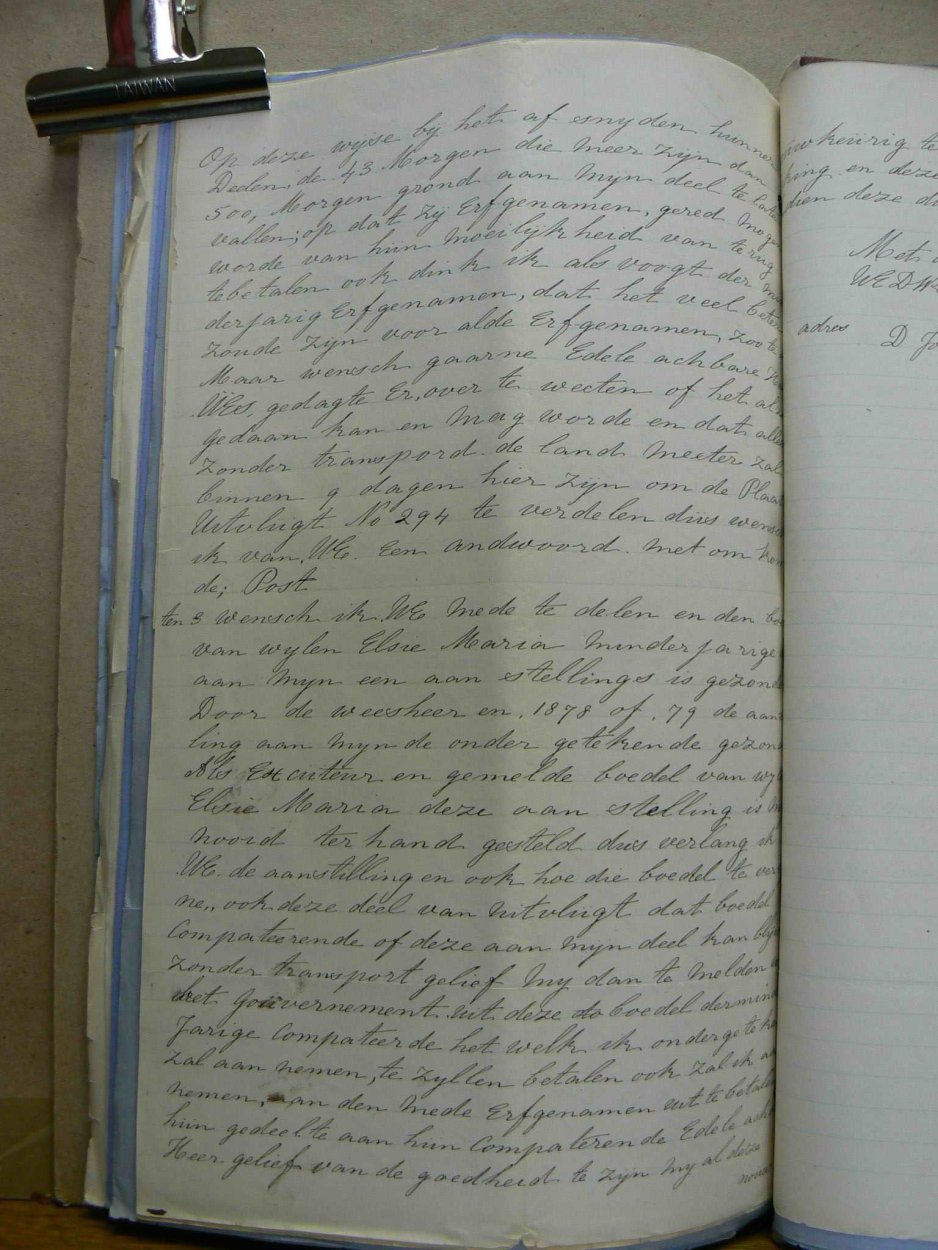 TAIWAN
Op deze wyse bij het af snyden hunner
Delen, de 43 Morgen die meer zijn dan
500, Morgen grond aan Myn deel te late
vallen; op dat zij Erfgenamen, gered moge
worde van hun moeilijkheid van terug
tebetalen ook dink ik als voogt der min
derjarig Erfgenamen, dat het veel beter
zoude zijn voor alde Erfgenamen, zoo te
Maar wensch gaarne Edele achbare
WEs, gedagte Er, over te weeten of het al
gedaan kan en Mag worde en dat alle
zonder transpord. de land Meeter zal
binnen 9 dagen hier zijn om de Plaa
Uitvlugt No 294 te verdelen dus wens
ik van, WE. Een andwoord. met om
de; Post
ten 3 wensch ik, WE Mede te delen en den bo
van wylen Elsie Maria Minderjarige
aan Myn een aan stellings is gezon
Door de weesheer en, 1878 of, 79 de aan
ling aan Myn de onder getekende gezon
Als Excuteur en gemelde boedel van wy
Elsie Maria deze aan stelling is
nooid ter hand gesteld dus verlang ik
WE. de aanstilling en ook hoe die boedel te ver
ne,, ook deze deel van Uitvlugt dat boedel
Compateerende of deze aan Myn deel kan blij
zonder transport gelief My dan te Melden
het Gouvernement uit deze boedel der min
Jarige Compateerde het welk ik onderge
zal aan nemen, te zyllen betalen ook zal ik aa
nemen, aan den Mede Erfgenamen uit te betale
hun gedeelte aan hun Compaterende Edele
Heer gelief van de goedheid te zijn My al deze
uwkeurig te
king en deze
dien deze
Met
WEDW
adres
D Jo